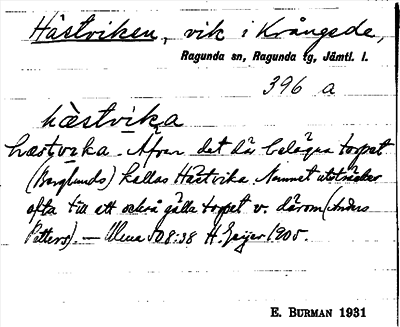 Hästviken, vik i Krångede,
Ragunda sn, Ragunda tg, Jämtl. l.
396 a
hæ̀stvika
hæstvika. Äfven det där belägna torpet
(Berglunds) kallas Hästvika. Namnet utsträckes
ofta till att också gälla torpet v. därom (Anders
Petters). — Ulma 508:38 H. Geijer 1905.
E. BURMAN 1931